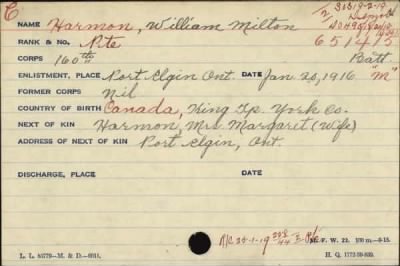 C
2 30519-2-19
NAME Harmon, William Milton
RANK & No. Pte 651415
CORPS 160th Batt.
ENLISTMENT, PLACE Port Elgin Ont. DATE Jan 20, 1916 "M"
FORMER CORPS Nil
COUNTRY OF BIRTH Canada, King Tp. York Co.
NEXT OF KIN Harmon, Mrs Margaret (Wife)
ADDRESS OF NEXT OF KIN Port Elgin, Ont.
DISCHARGE, PLACE DATE
R/C 25-1-19
M. F. W. 22.
L. L. 86779—M. & D.
H. Q. 1772-39-839.